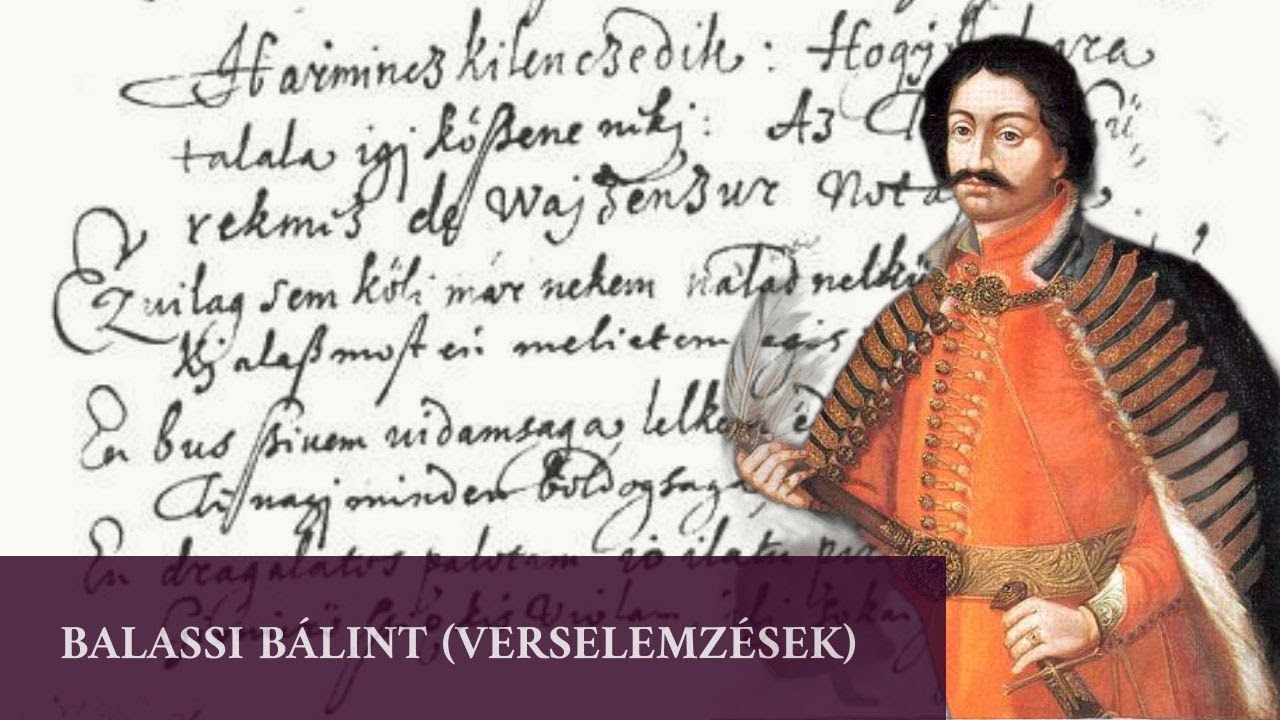 Harmincz kilenczedik : Hogj
talala igj kößene nikj : Az
rekmis de Wajdenßur Nota
Ez vilag sem köl már nekem nálad nelkü
Kj alaß most én melietem egis
En bus ßivem vidamsaga, lelkem
Ti nagj minden boldogsaga
En dragalatos palotam jó illatu
BALASSI BÁLINT (VERSELEMZÉSEK)